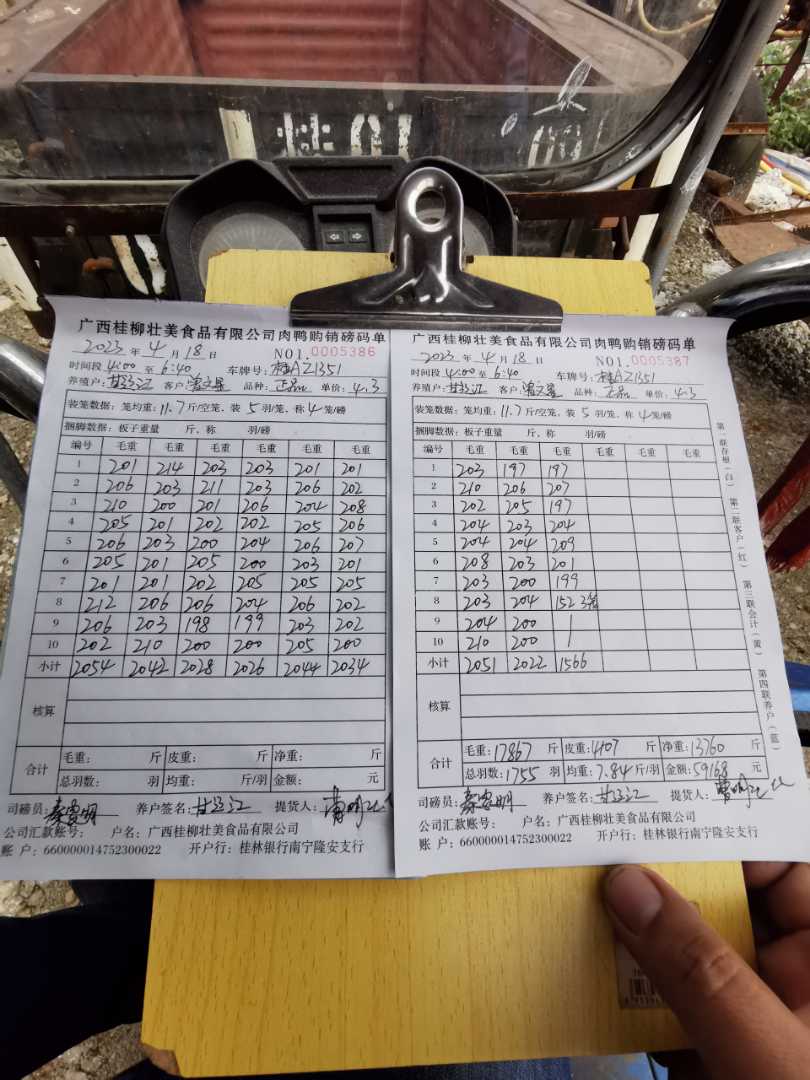 广西桂柳壮美食品有限公司肉鸭购销磅码单
2023 年 4 月 18 日 NO1.0005386
时间段 4:00 至 6:40 车牌号: 桂AZ1351
养殖户: 甘 江 客户: 曾文 品种: 正品 单价: 4.3
装笼数据: 笼均重: 11.7 斤/空笼、装 5 羽/笼、称 4 笼/磅
捆脚数据: 板子重量 斤、称 羽/磅
编号 毛重 毛重 毛重 毛重 毛重 毛重
1 201 214 203 203 201 201
2 206 203 211 203 206 202
3 210 200 201 206 204 208
4 205 201 202 202 205 206
5 206 203 200 204 206 207
6 205 201 205 200 203 201
7 201 201 202 205 205 205
8 212 206 206 204 206 202
9 206 203 198 199 203 202
10 202 210 200 200 205 200
小计 2054 2042 2028 2026 2044 2034
核算
合计 毛重: 斤 皮重: 斤 净重: 斤
总羽数: 羽 均重: 斤/羽 金额: 元
司磅员: 养户签名: 甘 江 提货人: 曾
公司汇款账号: 户名: 广西桂柳壮美食品有限公司
账 户: 660000014752300022 开户行: 桂林银行南宁隆安支行
广西桂柳壮美食品有限公司肉鸭购销磅码单
2023 年 4 月 18 日 NO1.0005387
时间段 4:00 至 6:40 车牌号: 桂AZ1351
养殖户: 甘 江 客户: 曾文 品种: 正品 单价: 4.3
装笼数据: 笼均重: 11.7 斤/空笼、装 5 羽/笼、称 4 笼/磅
捆脚数据: 板子重量 斤、称 羽/磅
编号 毛重 毛重 毛重 毛重 毛重 毛重
1 203 197 197
2 210 206 207
3 202 205 197
4 204 203 204
5 204 204 209
6 208 203 201
7 203 200 199
8 203 204 152 3笼
9 204 200
10 210 200
小计 2051 2022 1566
核算
合计 毛重: 17867 斤 皮重: 4107 斤 净重: 13760 斤
总羽数: 1755 羽 均重: 7.84 斤/羽 金额: 59168 元
司磅员: 养户签名: 甘 江 提货人: 曾
公司汇款账号: 户名: 广西桂柳壮美食品有限公司
账 户: 660000014752300022 开户行: 桂林银行南宁隆安支行
第一联存根(白) 第二联客户(红) 第三联会计(黄) 第四联养户(蓝)